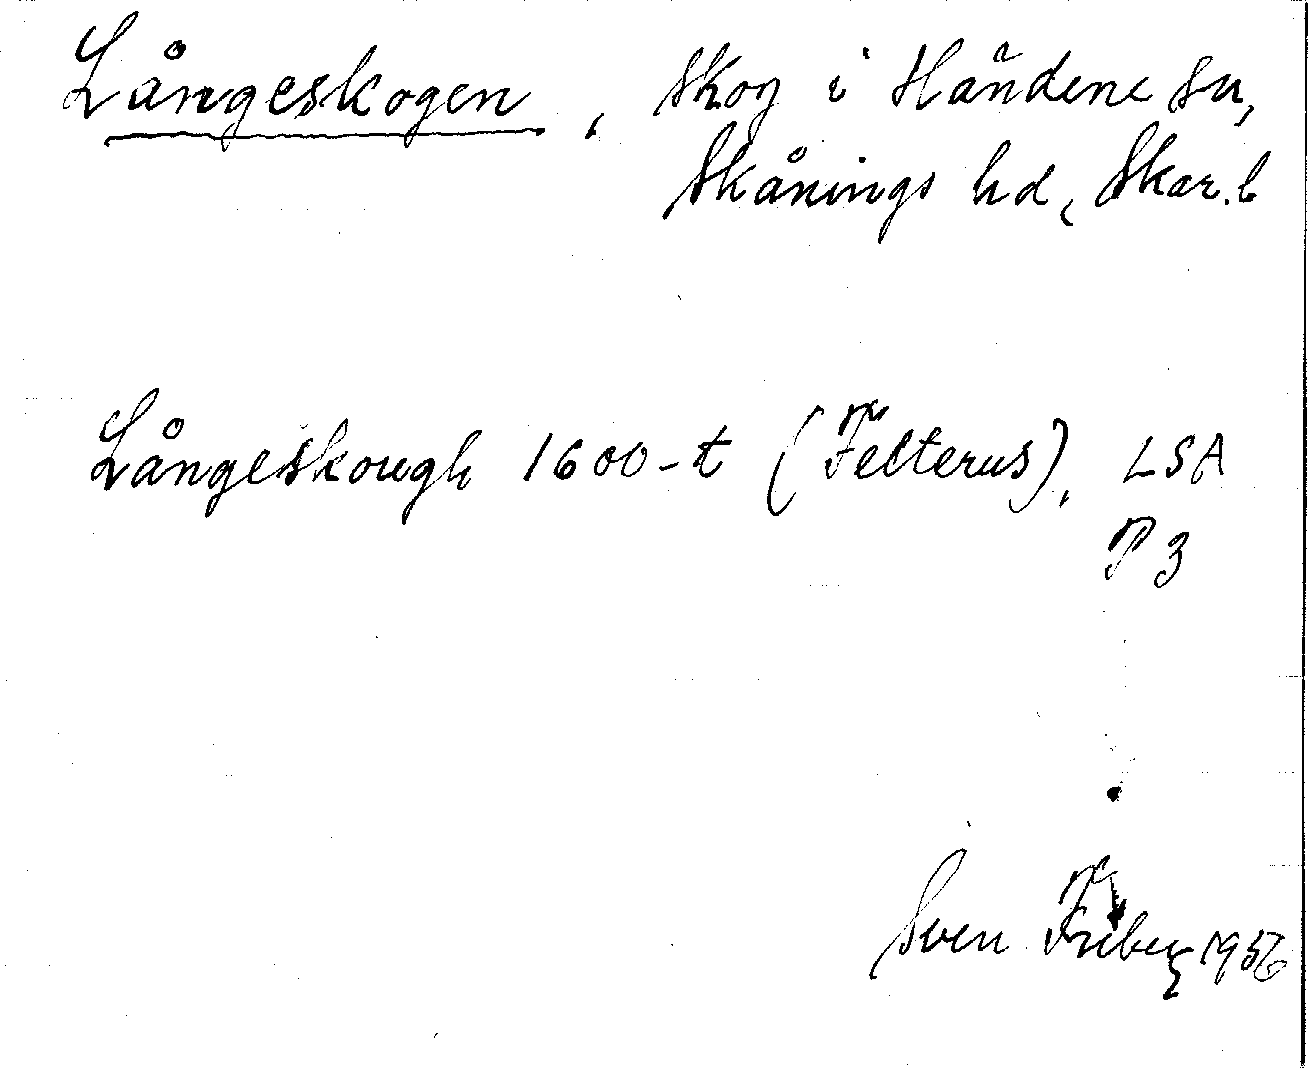 Långeskogen, skog i Händene sn,
Skånings hd, Skar.b
Långeskough 1600-t (Felterus), LSA
P 3
Sven Friberg 1956